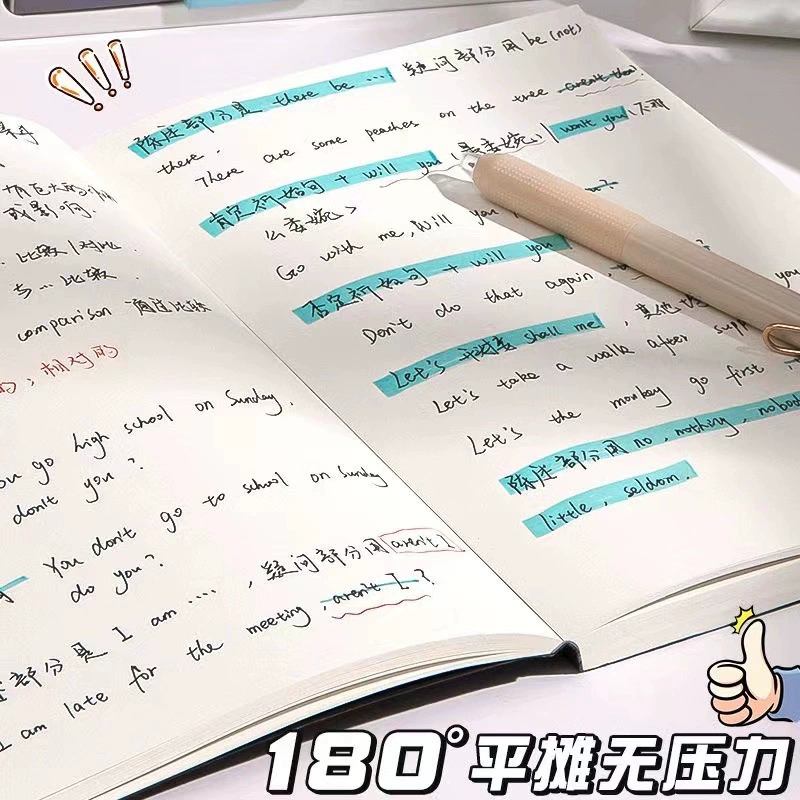 比较/对比
与…比较
comparison 通过比较
的；相对的
you go high school on Sunday,
don't you?
You don't go to school on Sunday
do you?
部分是 I am ....., 疑问部分用 aren't I
I am late for the meeting, aren't I?
陈述部分是 there be … 疑问部分用 be (not)
there.
There are some peaches on the tree
肯定祈使句 + will you (是委婉,) won't you
公委婉>
Go with me, Will you
否定祈使句 + will you
Don't do that again
Let's 开头表 shall me, 其他
Let's take a walk after
Let's the monkey go first
陈述部分用 no, nothing, nobody
little, seldom.
180°平摊无压力